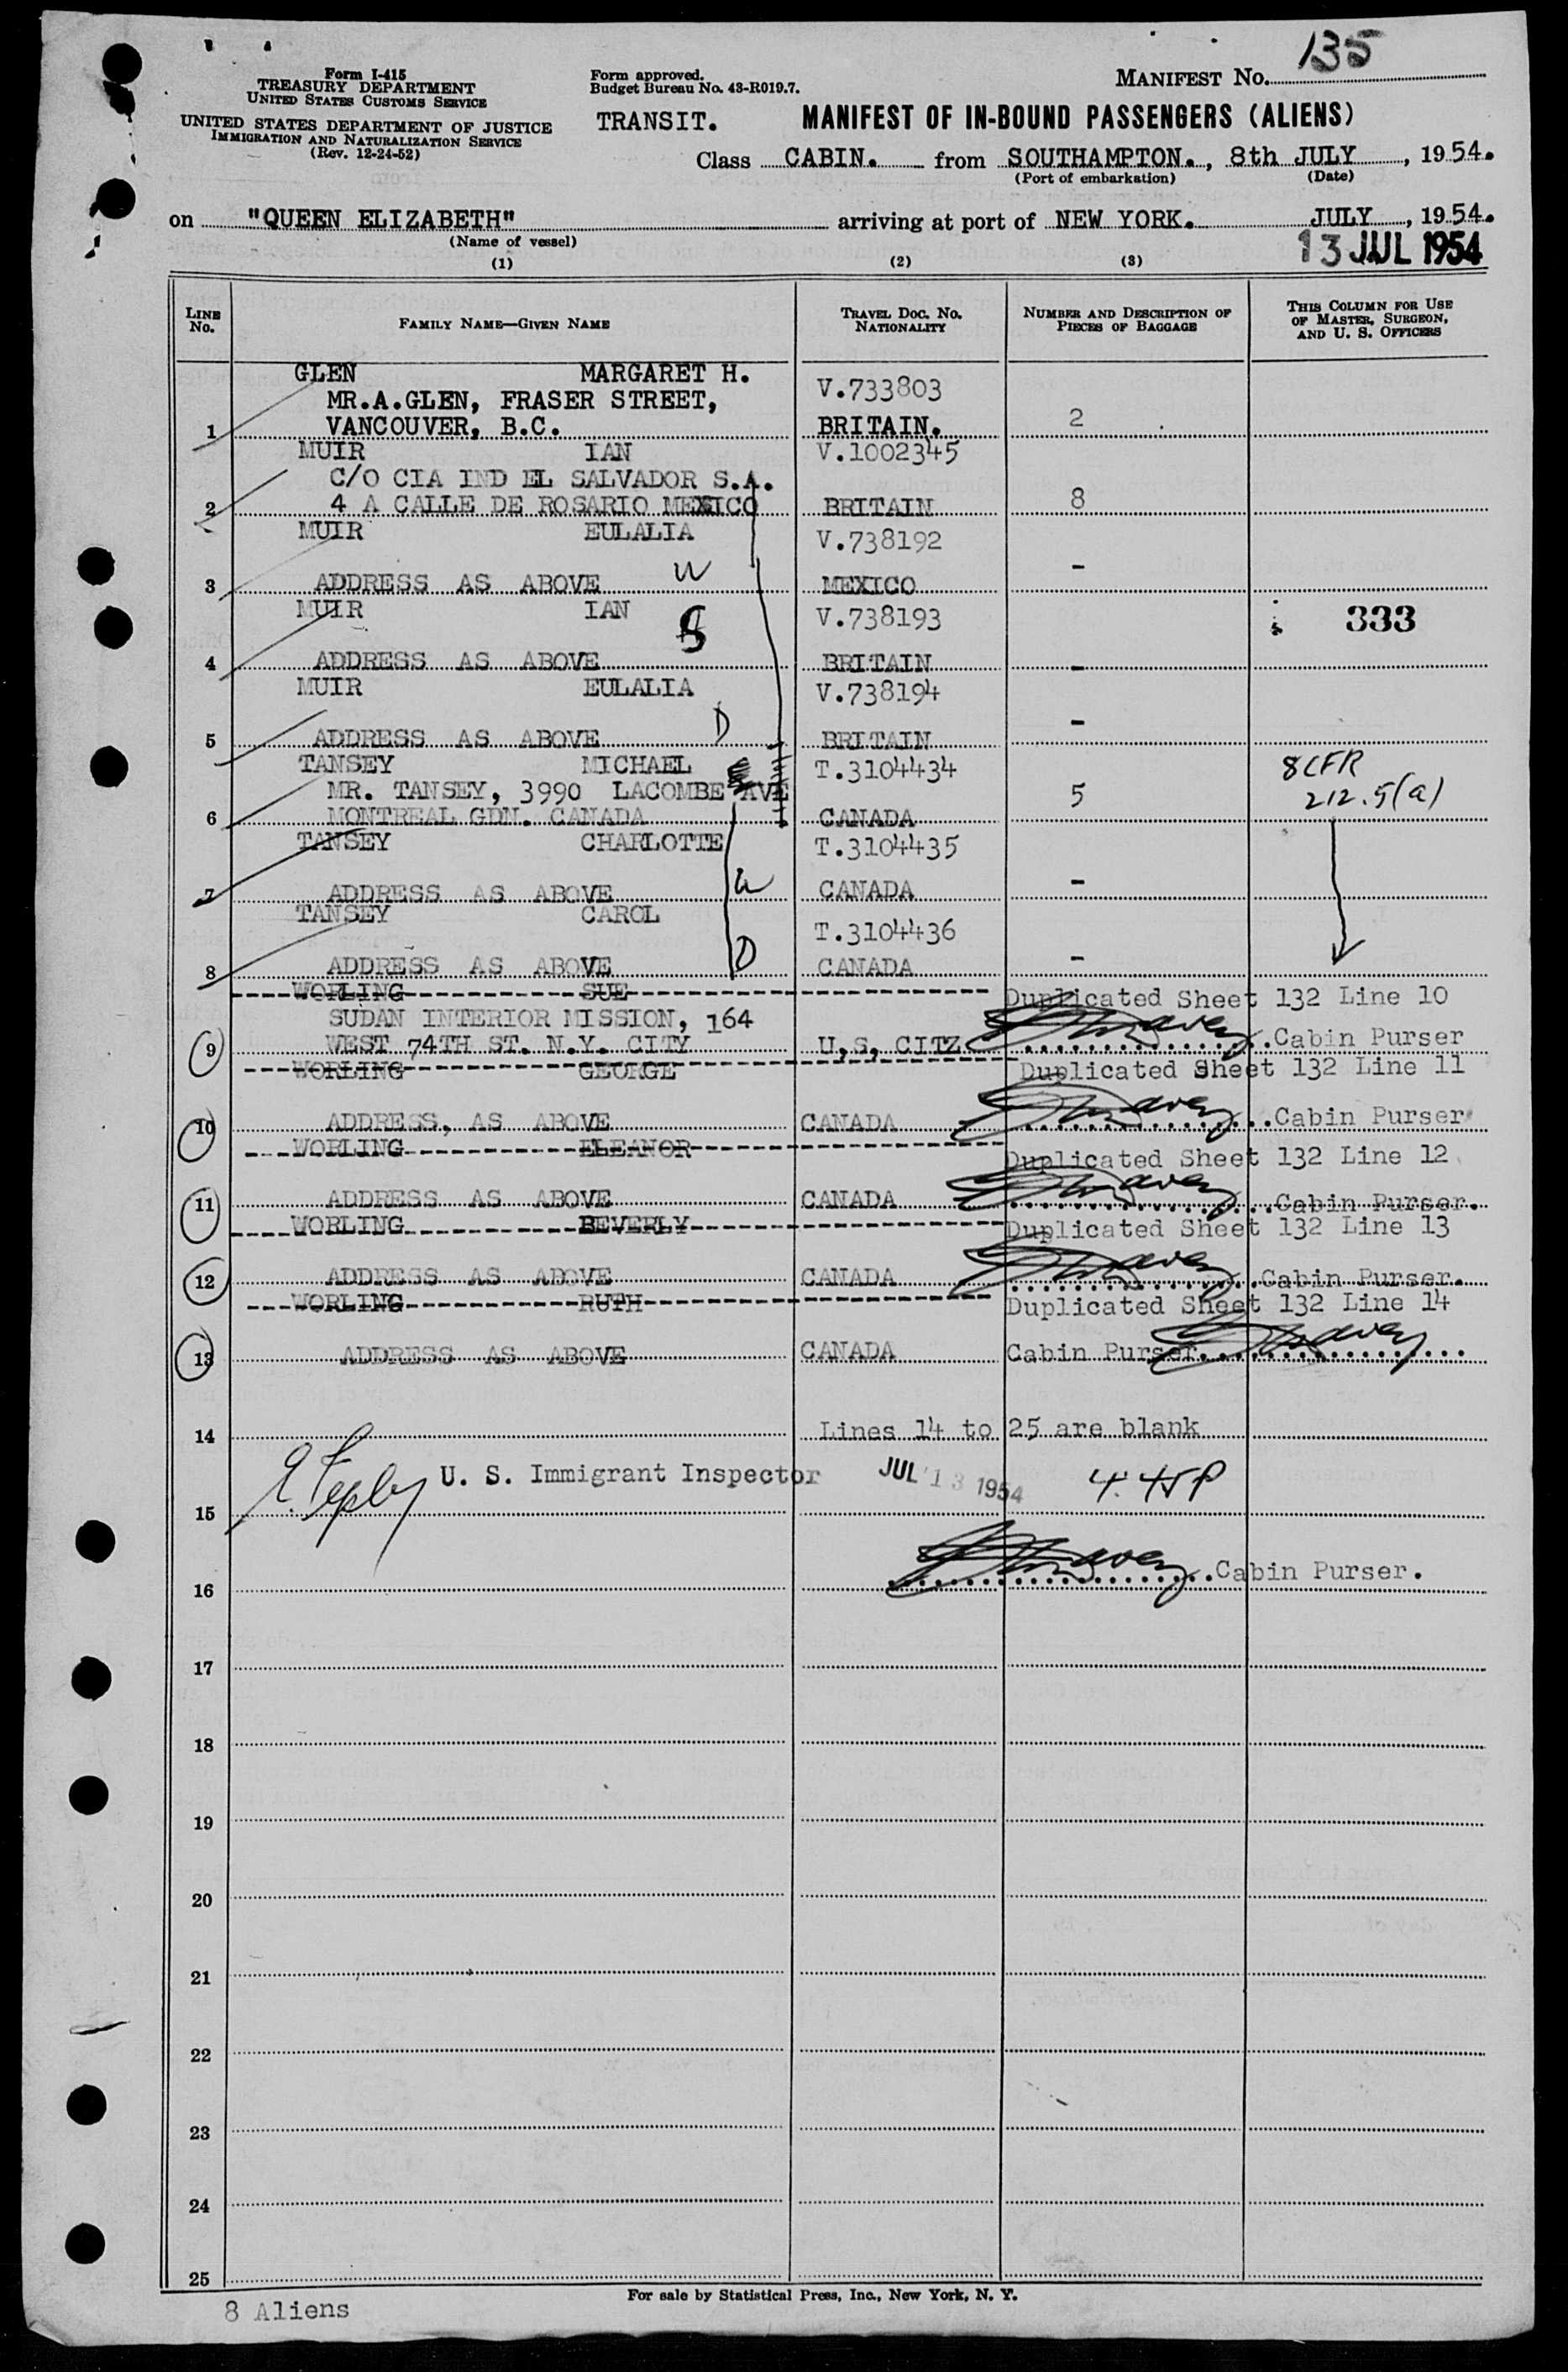 135
Form I-415
TREASURY DEPARTMENT
UNITED STATES CUSTOMS SERVICE
UNITED STATES DEPARTMENT OF JUSTICE
IMMIGRATION AND NATURALIZATION SERVICE
(Rev. 12-24-52)
Form approved.
Budget Bureau No. 43-R019.7.
MANIFEST No.
TRANSIT. MANIFEST OF IN-BOUND PASSENGERS (ALIENS)
Class CABIN. from SOUTHAMPTON., 8th JULY, 1954.
(Port of embarkation) (Date)
on "QUEEN ELIZABETH" arriving at port of NEW YORK. JULY, 1954.
(Name of vessel) 13 JUL 1954
(1) (2) (3)
LINE No. FAMILY NAME—GIVEN NAME TRAVEL DOC. No. NATIONALITY NUMBER AND DESCRIPTION OF PIECES OF BAGGAGE THIS COLUMN FOR USE OF MASTER, SURGEON, AND U. S. OFFICERS
GLEN MARGARET H. V.733803
MR.A.GLEN, FRASER STREET,
1 VANCOUVER, B.C. BRITAIN. 2
MUIR IAN V.1002345
C/O CIA IND EL SALVADOR S.A.
2 4 A CALLE DE ROSARIO MEXICO BRITAIN 8
MUIR EULALIA V.738192
W
3 ADDRESS AS ABOVE MEXICO -
MUIR IAN V.738193 333
S
4 ADDRESS AS ABOVE BRITAIN -
MUIR EULALIA V.738194
D
5 ADDRESS AS ABOVE BRITAIN -
TANSEY MICHAEL T.3104434 8 CFR
MR. TANSEY, 3990 LACOMBE AVE 5 212.5(a)
6 MONTREAL GDN. CANADA CANADA
TANSEY CHARLOTTE T.3104435
7 ADDRESS AS ABOVE W CANADA -
TANSEY CAROL T.3104436
8 ADDRESS AS ABOVE D CANADA -
WORLING SUE Duplicated Sheet 132 Line 10
SUDAN INTERIOR MISSION, 164
9 WEST 74TH ST. N.Y. CITY U,S, CITZ Cabin Purser
WORLING GEORGE Duplicated Sheet 132 Line 11
10 ADDRESS, AS ABOVE CANADA Cabin Purser
WORLING ELEANOR Duplicated Sheet 132 Line 12
11 ADDRESS AS ABOVE CANADA Cabin Purser.
WORLING BEVERLY Duplicated Sheet 132 Line 13
12 ADDRESS AS ABOVE CANADA Cabin Purser.
WORLING RUTH Duplicated Sheet 132 Line 14
13 ADDRESS AS ABOVE CANADA Cabin Purser
14 Lines 14 to 25 are blank
U. S. Immigrant Inspector JUL 13 1954 4.45P
15
Cabin Purser.
16
17
18
19
20
21
22
23
24
25
For sale by Statistical Press, Inc., New York, N. Y.
8 Aliens